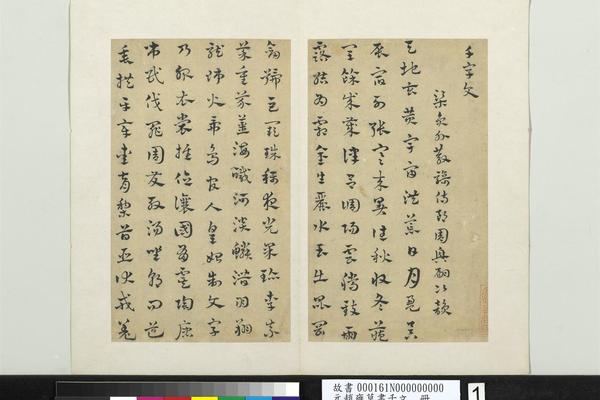 千字文
梁員外散騎侍郎周興嗣次韻
天地玄黃宇宙洪荒日月盈昃
辰宿列張寒來暑往秋收冬藏
閏餘成歲律呂調陽雲騰致雨
露結為霜金生麗水玉出崑岡
劍號巨闕珠稱夜光果珍李柰
菜重芥薑海鹹河淡鱗潛羽翔
龍師火帝鳥官人皇始制文字
乃服衣裳推位讓國有虞陶唐
弔民伐罪周發殷湯坐朝問道
垂拱平章愛育黎首臣伏戎羌
故書 000161N000000000
元趙雍草書千文 冊
1